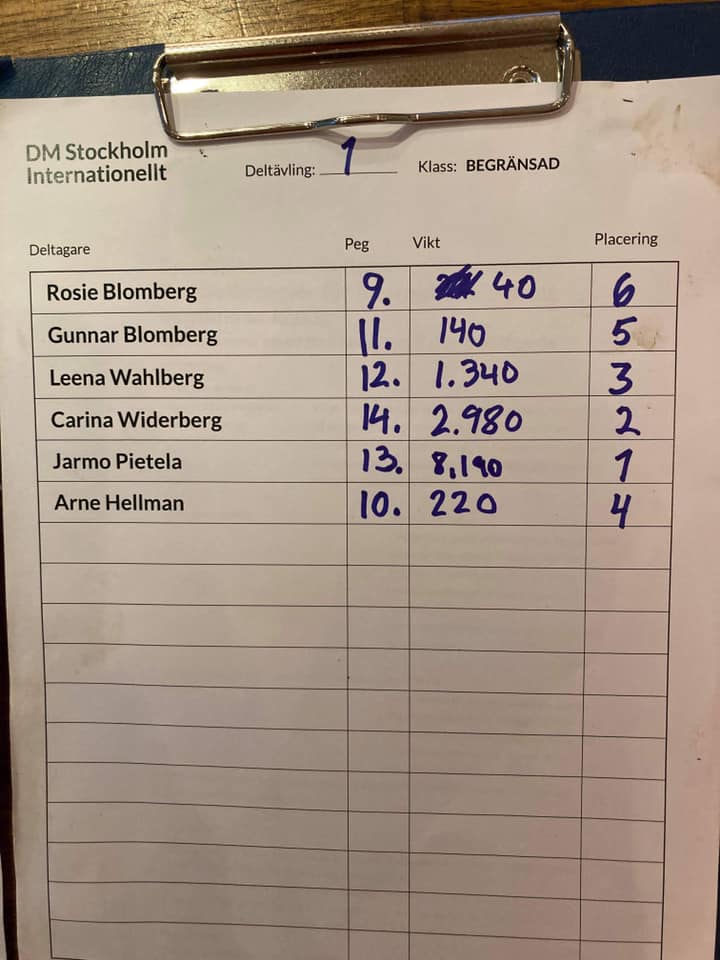 DM Stockholm
Internationellt
Deltävling: 1 Klass: BEGRÄNSAD
Deltagare Peg Vikt Placering
Rosie Blomberg 9. 40 6
Gunnar Blomberg 11. 140 5
Leena Wahlberg 12. 1.340 3
Carina Widerberg 14. 2.980 2
Jarmo Pietela 13. 8,190 1
Arne Hellman 10. 220 4